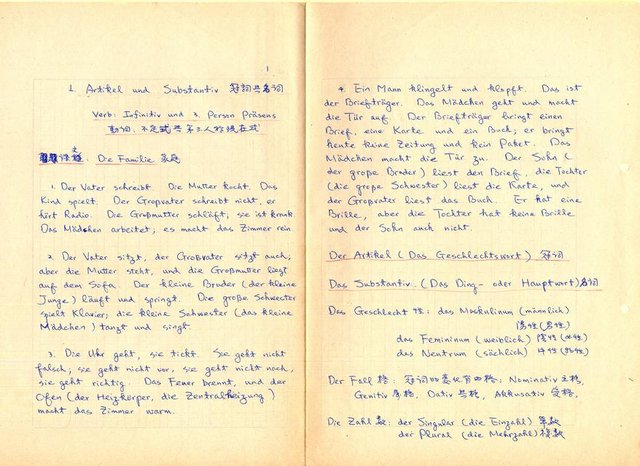 1
1. Artikel und Substantiv 冠詞与名词
Verb: Infinitiv und 3. Person Präsens
動词: 不定式与第三人称现在式
Die Familie 家庭
1. Der Vater schreibt. Die Mutter kocht. Das
Kind spielt. Der Großvater schreibt nicht, er
hört Radio. Die Großmutter schläft; sie ist krank.
Das Mädchen arbeitet; es macht das Zimmer rein.
2. Der Vater sitzt, der Großvater sitzt auch;
aber die Mutter steht, und die Großmutter liegt
auf dem Sofa. Der kleine Bruder (der kleine
Junge) läuft und springt. Die große Schwester
spielt Klavier; die kleine Schwester (das kleine
Mädchen) tanzt und singt.
3. Die Uhr geht, sie tickt. Sie geht nicht
falsch; sie geht nicht vor, sie geht nicht nach,
sie geht richtig. Das Feuer brennt, und der
Ofen (der Heizkörper, die Zentralheizung)
macht das Zimmer warm.
4. Ein Mann klingelt und klopft. Das ist
der Briefträger. Das Mädchen geht und macht
die Tür auf. Der Briefträger bringt einen
Brief, eine Karte und ein Buch; er bringt
heute keine Zeitung und kein Paket. Das
Mädchen macht die Tür zu. Der Sohn (
der große Bruder) liest den Brief, die Tochter
(die große Schwester) liest die Karte, und
der Großvater liest das Buch. Er hat eine
Brille, aber die Tochter hat keine Brille
und der Sohn auch nicht.
Der Artikel (Das Geschlechtswort) 冠词
Das Substantiv. (Das Ding- oder Hauptwort) 名词
Das Geschlecht 性: das Maskulinum (männlich)
陽性 (男性)
das Femininum (weiblich) 陰性 (女性)
das Neutrum (sächlich) 中性
Der Fall 格: 冠词 四格: Nominativ 主格,
Genitiv 格, Dativ 与格, Akkusativ 受格,
Die Zahl 数: der Singular (die Einzahl) 單数
der Plural (die Mehrzahl) 複数